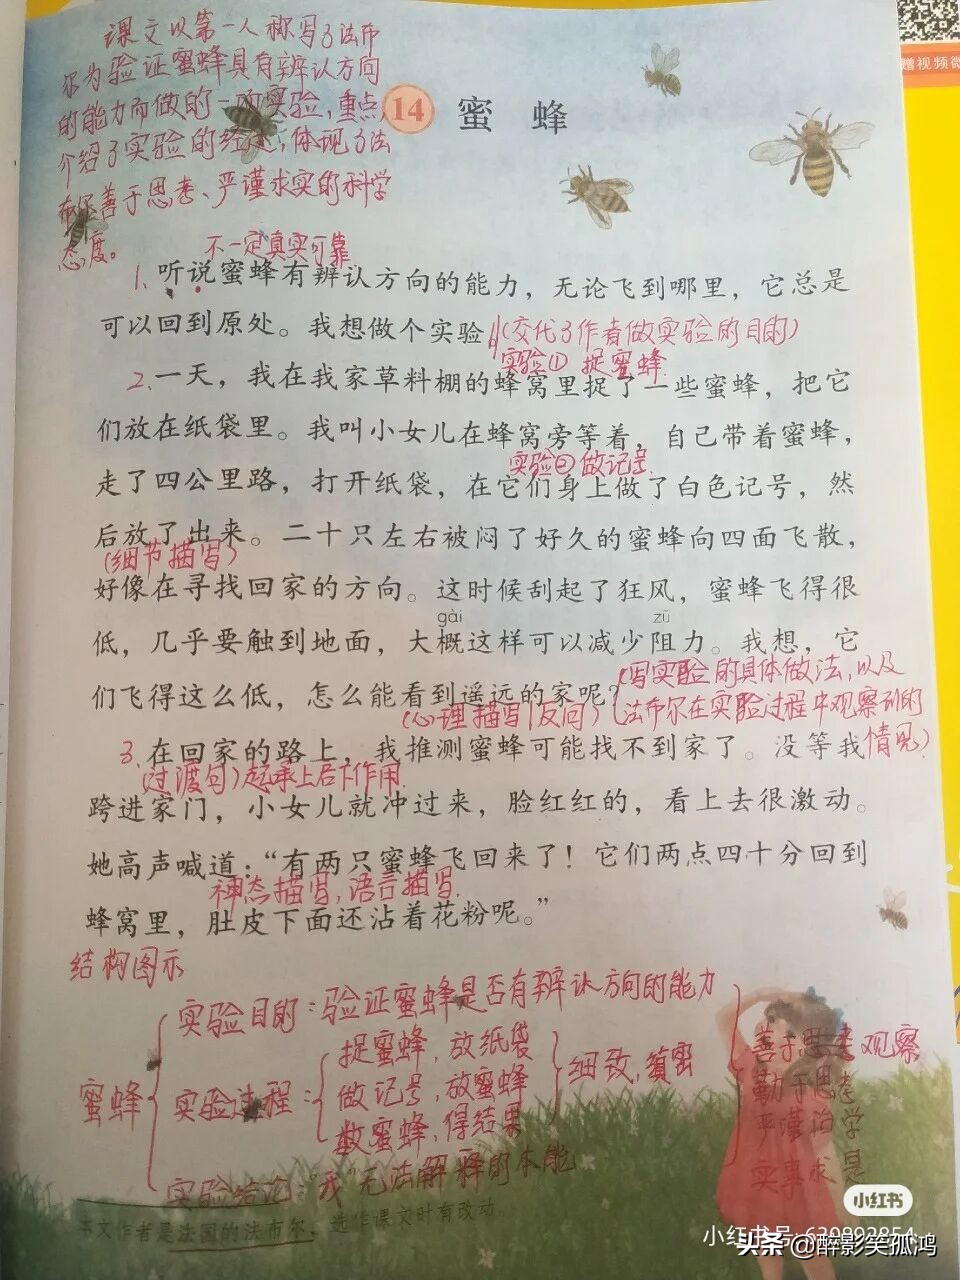 课文以第一人称写了法布
尔为验证蜜蜂具有辨认方向
的能力而做的一项实验,重点
介绍了实验的经过,体现了法
布尔善于思考、严谨求实的科学
态度。
赠视频微
14 蜜蜂
不一定真实可靠
1.听说蜜蜂有辨认方向的能力，无论飞到哪里，它总是
可以回到原处。我想做个实验。(交代了作者做实验的目的)
实验① 捉蜜蜂.
2.一天，我在我家草料棚的蜂窝里捉了一些蜜蜂，把它
们放在纸袋里。我叫小女儿在蜂窝旁等着，自己带着蜜蜂，
实验②做记号.
走了四公里路，打开纸袋，在它们身上做了白色记号，然
后放了出来。二十只左右被闷了好久的蜜蜂向四面飞散，
(细节描写)
好像在寻找回家的方向。这时候刮起了狂风，蜜蜂飞得很
gài zǔ
低，几乎要触到地面，大概这样可以减少阻力。我想，它
(写实验的具体做法,以及
们飞得这么低，怎么能看到遥远的家呢？
(心理描写/反问) 法布尔在实验过程中观察到的
3.在回家的路上，我推测蜜蜂可能找不到家了。没等我 情况)
(过渡句)起承上启下作用
跨进家门，小女儿就冲过来，脸红红的，看上去很激动。
她高声喊道：“有两只蜜蜂飞回来了！它们两点四十分回到
神态描写,语言描写.
蜂窝里，肚皮下面还沾着花粉呢。”
结构图示
蜜蜂
实验目的:验证蜜蜂是否有辨认方向的能力
实验过程:
捉蜜蜂,放纸袋
做记号,放蜜蜂
数蜜蜂,得结果
细致,缜密
实验结论:“我”无法解释的本能
善于思考观察
勤于思考
严谨治学
实事求是
本文作者是法国的法布尔，选作课文时有改动。
小红书
小红书号: 630892854
头条 @醉影笑孤鸿